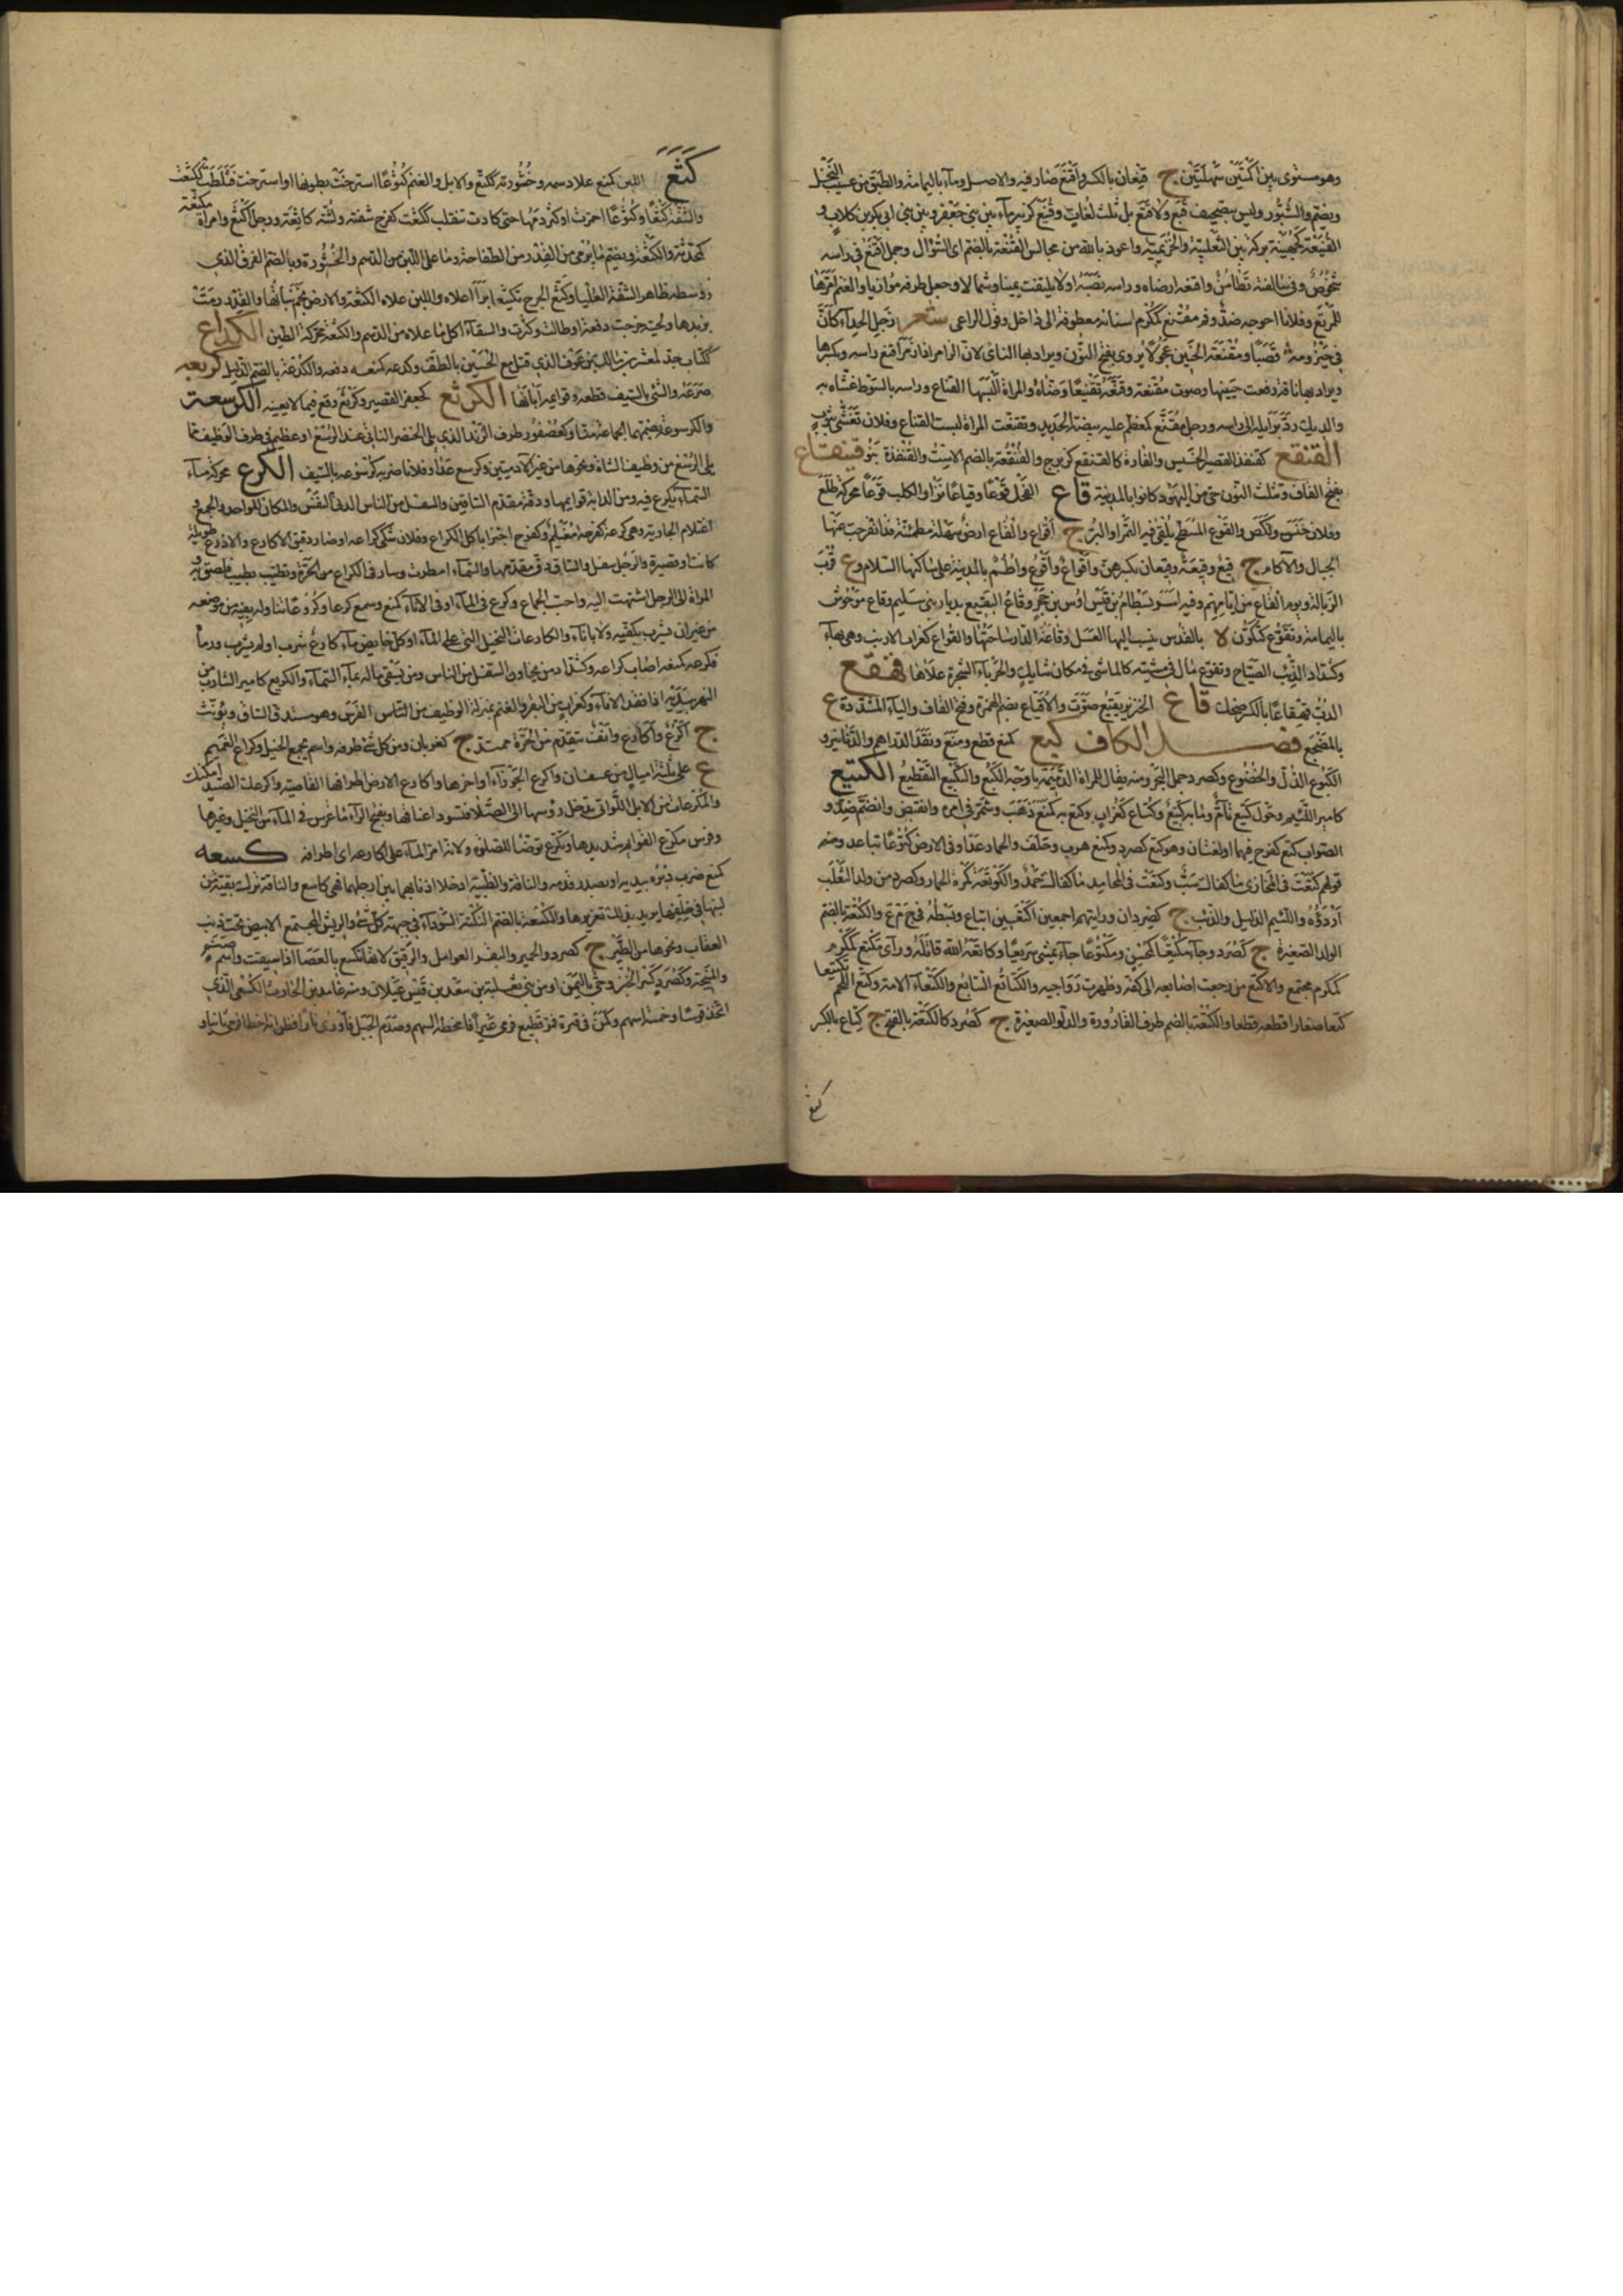 وهو مستوى بين أكمتين سهلتين ج قنعان بالكسر وأقنع صار فيه والاصل وماء باليمامة والطبق من عسب النخل
ويضم والشبور وليس بتصحيف قبع ولا قثع بل ثلث لغات وقنيع كزبير ماء بين بني جعفر وبين بني ابي بكر بن كلاب و
القنيعة كجهينة بركة بين الثعلبية والخزيمية واعوذ بالله من مجالس القنعة بالضم اى السؤال وجمل أقنع فى راسه
شخوص وفى سالفته تطامن واقنعه ارضاه وراسه نصبه او لا يلتفت يمينا وشمالا وجعل طرفه موازيا والغنم امرها
للمرتع وفلانا احوجه ضد وفم مقنع كمكرم اسنانه معطوفة الى داخل وقول الراعى شعر زجل الحداء كأن
فى حيزومه قصبا ومقنعة الحنين عجولا يروى بفتح النون ويراد بها الناى لان الزامر اذا زمر أقنع راسه وبكسرها
ويراد بها ناقة رفعت حنينها وصوت مقنعة وقنعه تقنيعا رضاه والمراة ألبسها القناع وراسه بالسوط غشاه به
والديك رد برائله الى راسه ورجل مقنع كمعظم عليه بيضة الحديد وتقنعت المراة لبست القناع وفلان تغشى بثوب
القنقع كقنفذ القصير الخسيس والفارة كالقنقع كزبرج والقنقعة بالضم الاست والقنفذة بنو قينقاع
بفتح القاف وتثلث النون حى من اليهود كانوا بالمدينة قاع الفحل قوعا وقياعا نزا والكلب قوعا محركة ظلع
وفلان خنس ونكص والقوع المسطح يلقى فيه التمر او البر ج أقواع والقاع ارض سهلة مطمئنة قد انفرجت عنها
الجبال والآكام ج قيع وقيعة وقيعان بكسرهن وأقواع وأقوع وأطم بالمدينة على ساكنها السلام وع قرب
الزبالة ويوم القاع من ايامهم وفيه اسر بسطام بن قيس اوس بن حجر وقاع البقيع بديار بنى سليم وقاع موحوش
باليمامة وتقوع كتكون لا بالقدس ينسب اليها العسل وقاعة الدار ساحتها والقواع كغراب الارنب وهى بهاء
وكشداد الذئب الصياح وتقوع مال فى مشيته كالماشى فى مكان شائك والحرباء الشجرة علاها قهقع
الدب قهقاعا بالكسر ضحك قاع الخنزير يقيع صوت والاقياع بضم الهمزة وفتح القاف والياء المشددة ع
بالمضجع فصل الكاف كبع كمنع قطع ومنع ونقد الدراهم والدنانير و
الكبوع الذل والخضوع وكصرد جمل البحر ومنه يقال للمراة الدميمة يا وجه الكبع والتكبيع التقطيع الكتيع
كامير اللئيم وحول كتيع تام وما به كتيع وكتاع كغراب وكتع به كمنع ذهب وشمر فى امره وانقبض وانضم ضد و
الصواب كتع كفرح فيهما او لغتان وهو كتع كصرد وكمنع هرب وحلف والحمار عدا وفى الارض كتوعا تباعد ومنه
قولهم كتعت فى المخازى ما كفاك سب وكتعت فى المحامد ما كفاك حمد والكوتعة كمرة الحمار وكصرد من ولد الثعلب
أردؤه واللئيم الذليل والذئب ج كصردان ورايتهم اجمعين اكتعين اتباع وبسطه فى ج م ع والكتعة بالضم
الولد الصغيرة ج كصرد وجاء مكتعا كمحسن ومكتوعا جاء يمشى سريعا وكاتعه الله قاتله وراى مكتع كمكرم
كمكرم مجتمع والاكتع من رجعت اصابعه الى كفه وظهرت رواجبه والكتائع التتابع والكتعاء الامة وكتع اللحم تكتيعا
كتعا صغارا قطعه قطعا والكتعة بالضم طرف القارورة والدلو الصغيرة ج كصرد كالكتعة بالفتح ج كتاع بالكسر
كثع
كثع اللبن كمنع علا دسمه وخثورته ككثع والابل والغنم كثوعا استرخت بطونها او استرخت فثلطت ككثعت
والشفة كثعا وكثوعا احمرت او كثر دمها حتى كادت تنقلب ككثعت كفرح شفته ولثته كاثعة ورجل أكثع وامراة مكثعة
كمحدثة والكثعة ويضم ما يرمى من القدر من الطفاحة وما على اللبن من الدسم والخثورة وبالضم الفرق الذى
وسط ظاهر الشفة العليا وكثع الجرح تكثيعا برا اعلاه واللبن علاه الكثعة والارض نجم نباتها والقدر رمت
بزبدها ولحية خرجت دفعة او طالت وكثرت والسقاء اكل ما علاه من الدسم والكثعة محركة الطين الكداع
ككتاب جد لمعشر بن مالك بن عوف الذى قتل مع الحسين بالطف وكدعه كمنعه دفعه والكدعة بالضم الذليل كربعه
صرعه والشئ بالسيف قطعه وقوايمه ابانها الكرثع كجعفر القصير وكرتع وقع فيما لا يعنيه الكرسعة
والكرسوعة بضمهما الجماعة منا وكعصفور طرف الزند الذى يلى الخنصر الناتى عند الرسغ او عظيم فى طرف الوظيف مما
يلى الرسغ من وظيف الشاة ونحوها من غير الآدميين وكرسع عدا وفلانا ضربه كرسوعه بالسيف الكرع محركة ماء
السماء يكرع فيه ومن الدابة قوايمها ودقة مقدم الساقين والسفل من الناس الدنى النفس والمكان للواحد والجمع و
اغتلام الجارية وهى كرعة كفرحة مغليم وكفرح اجتزا باكل الكراع وفلان شكى كراعه او صار دقيق الاكارع والاذرع طويلة
كانت او قصيرة والرجل سفل والساق دق مقدمها والسماء امطرت وسار فى الكراع من الحرة وتطيب بطيب فلصق به و
المراة الى الرجل اشتهت اليه واحب الجماع وكرع فى الماء او فى الاناء كمنع وسمع كرعا وكروعا تناوله بفيه من موضعه
من غير ان يشرب بكفيه ولا باناء والكارعات النخيل التى على الماء وكل خايض ماء كارع شرب او لم يشرب ورماه
فكرعه كمنعه اصاب كراعه وكشداد من يخادن السفل من الناس ومن يسقى ماله بماء السماء والكريع كامير الشارب من
النهر بيديه اذا فقد الاناء وكغراب من البقر والغنم بمنزلة الوظيف من الناس الفرس وهو مستدق الساق ويؤنث
ج أكرع وأكارع وانف يتقدم من الحرة ممتد ج كغربان ومن كل شئ طرفه واسم يجمع الخيل وكراع الغميم
ع على ثلثة اميال من عسفان واكرع الجوزاء اواخرها واكارع الارض اطرافها القاصية واكرعك الصيد امكنك
والمكرعات من الابل اللواتى تدخل رؤسها الى الصلا فتسود اعناقها وبفتح الراء ما غرس فى الماء من النخيل وغيرها
وفرس مكرع القوايم شديدها وتكرع توضا للصلوة ولانه امر الماء على اكارعه اى اطرافه كسعه
كمنع ضرب دبره بيده او بصدر قدمه والناقة والظبية ادخلا اذنابهما بين ارجلهما فهى كاسع والناقة ترك بقية من
لبنها فى خلفها يريد بذلك تغزيرها والكسعة بالضم النكتة السوداء فى جبهة كل شئ والريش المجتمع الابيض تحت ذنب
العقاب ونحوها من الطير ج كصرد والحمير والبقر العوامل والرقيق لانها تكسع بالعصا اذا سيقت واسم صنم
والمنيحة وكصرد كسر الخبز وحى باليمن او من بنى ثعلبة بن سعد بن قيس عيلان ومنه غامد بن الحارث الكسعى الذى
اتخذ قوسا وخمسة اسهم وكمن فى قترة فمر قطيع فرمى عيرا فامخطه السهم وصدم الجبل فاورى نارا فظن انه اخطا فرمى ثانيا و